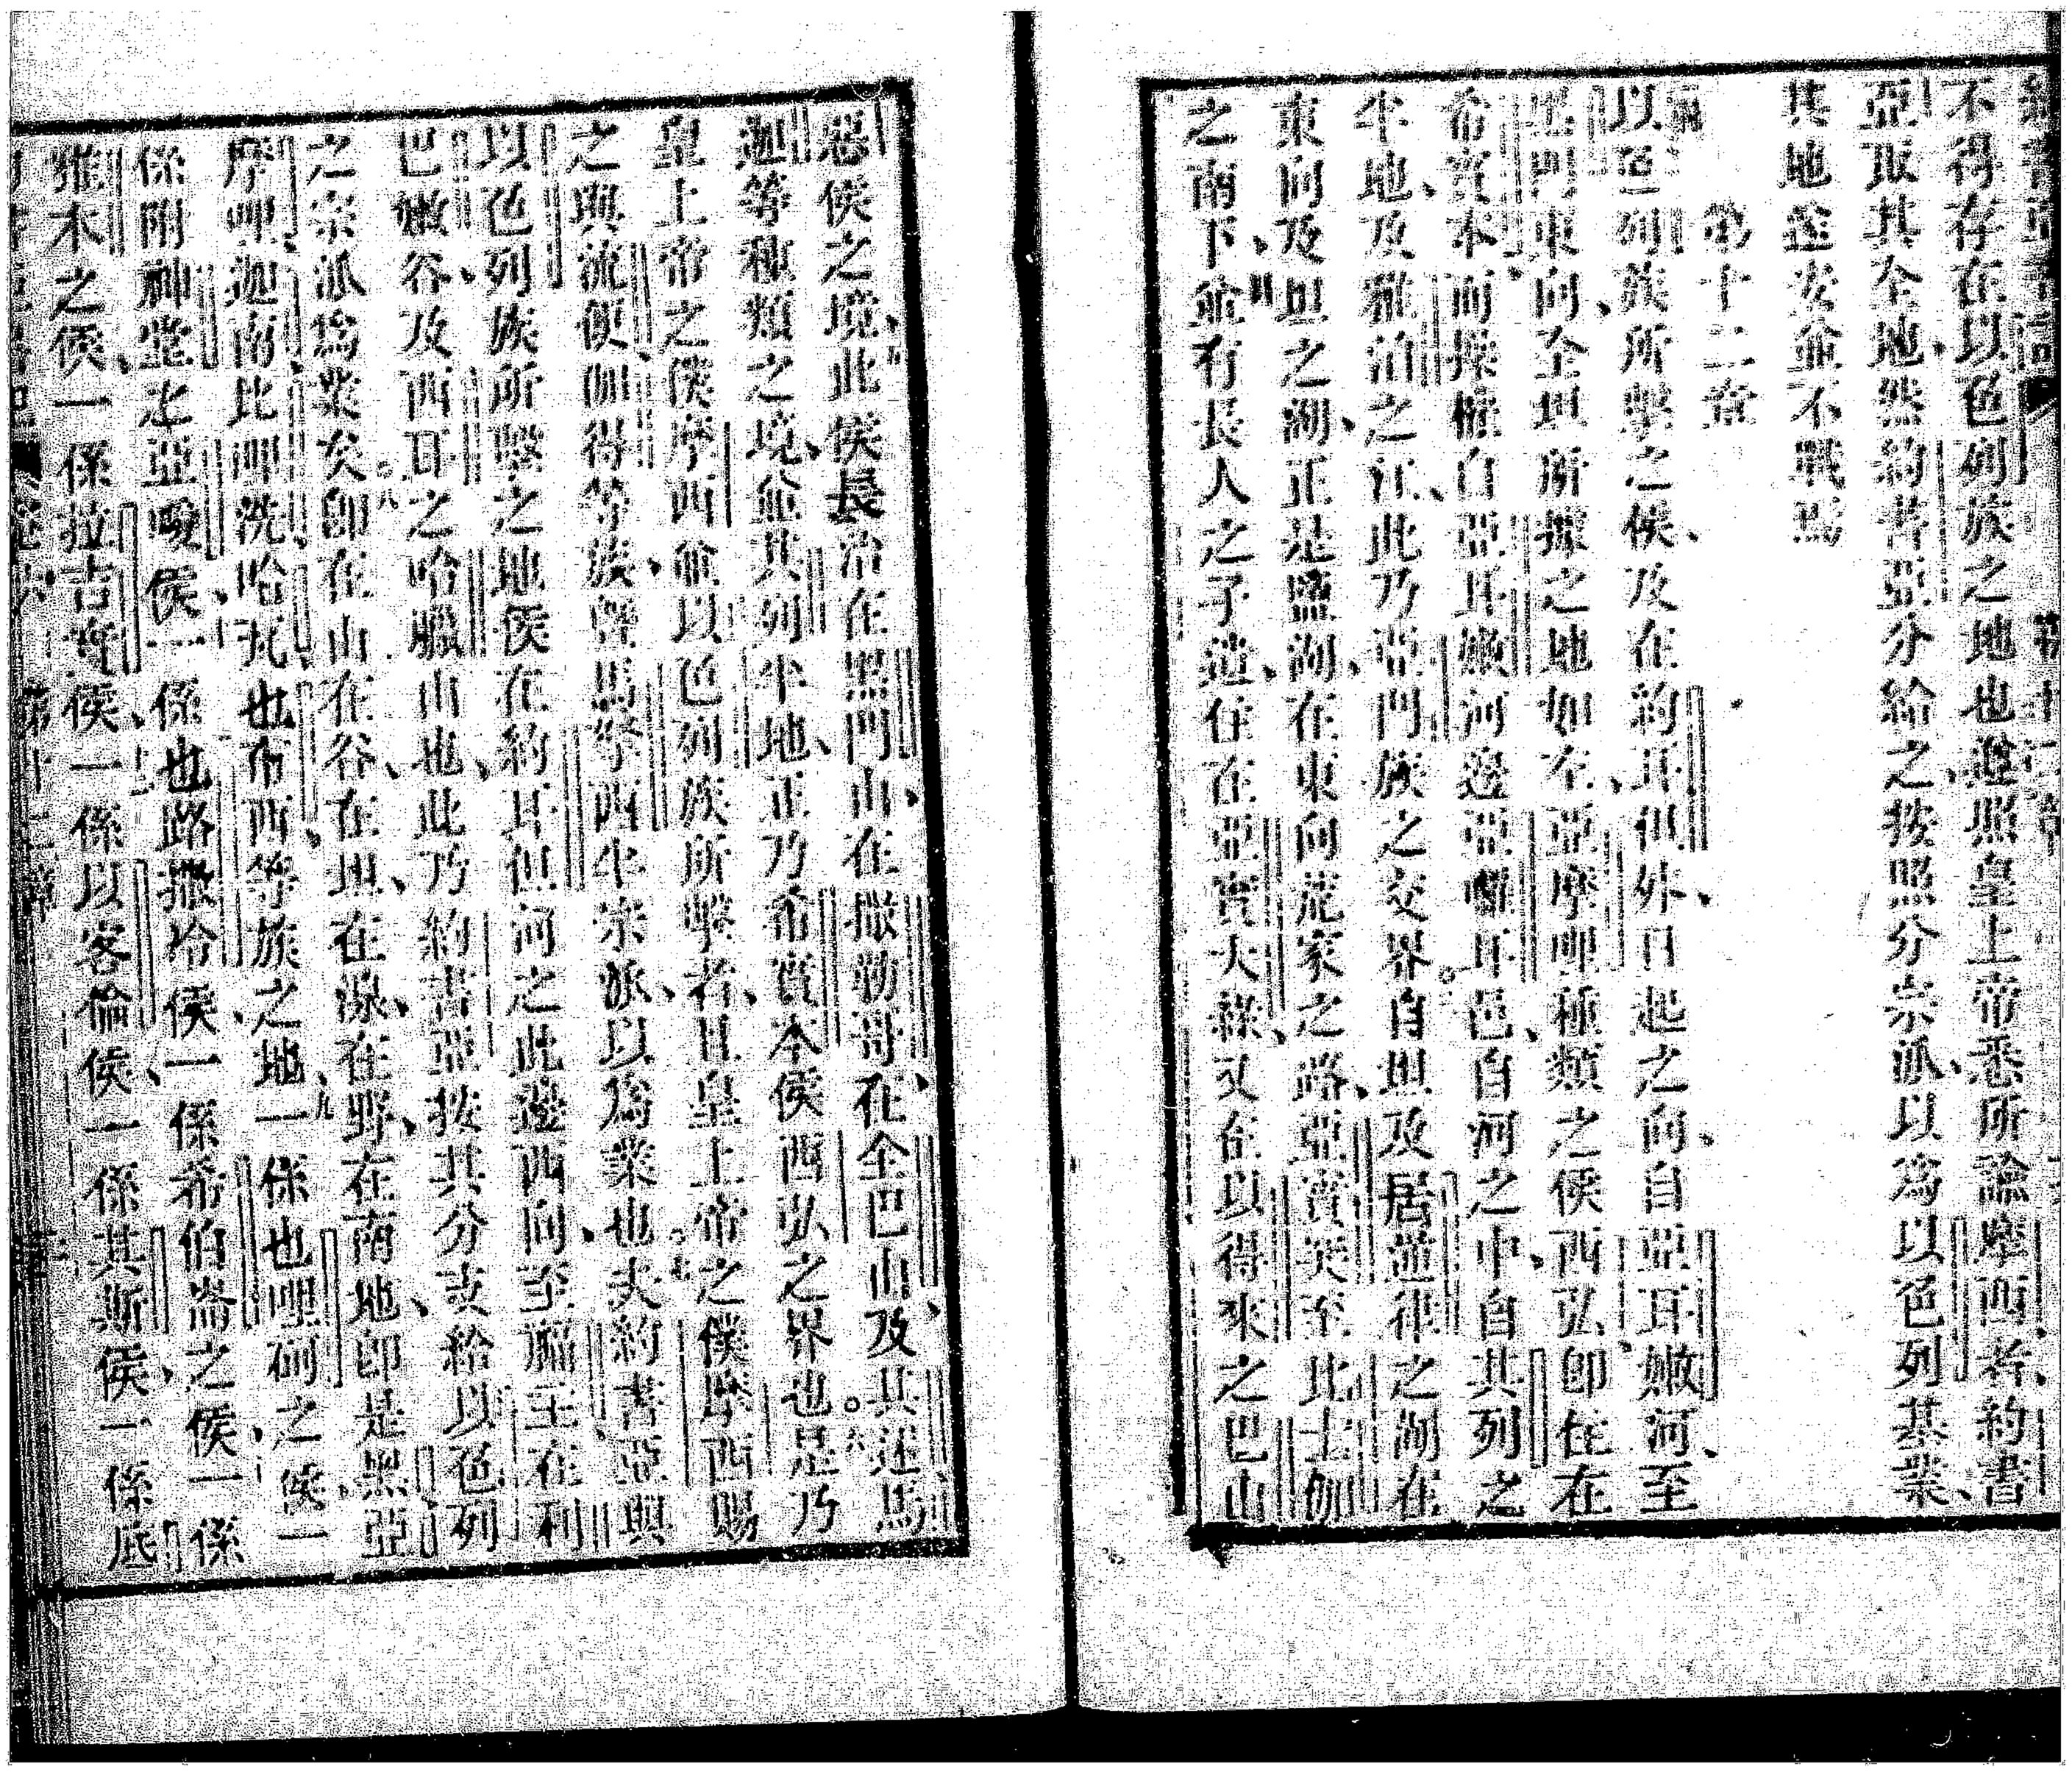 不得存在以色列族之地也遵照皇上帝悉所諭摩西者、約書
亞取其全地、然約書亞分給之、按照分宗派、以爲以色列基業、
其地並安並不戰焉
第十二章
以色列族所擊之侯、及在約耳但外、日起之向、自亞耳嫩河、至
黑門東向、全坦所據之地如左、亞摩呷種類之侯西弘、卽住在
希實本、而操權自亞耳嫩河邊亞囉耳邑、自河之中、自其列之
半地、及雅泊之江、此乃亞門族之交界自坦及居逆律之湖在
東向、及坦之湖、正是鹽湖、在東向荒家之路、亞實英至比士伽
之南下、並有長人之子遺、住在亞實大綠、又在以得來之巴山
惡侯之境、此侯長治在黑門山、在撒勒哥、在全巴山、及其述馬
迦等種類之境、並其列半地、正乃希實本侯西弘之界也是乃
皇上帝之僕摩西並以色列族所擊者、且皇上帝之僕摩西賜
之與流便、伽得等族、曁馬拏西半宗派、以爲業也夫約書亞與
以色列族所擊之地侯在約耳但河之此邊西向、至廊王在利
巴嫩谷、及西耳之哈臘山也、此乃約書亞按其分支給以色列
之宗派爲業矣卽在山在谷、在坦、在瀑、在野、在南地、卽是黑亞
摩呷迦南比呷洗哈瓦也布西等族之地、一係也哩硐之侯、一
係附神堂之亞嗳侯、一係也路撒冷侯、一係希伯崙之侯、一係
雅木之侯、一係拉吉實侯、一係以客倫侯、一係其斯侯、一係底